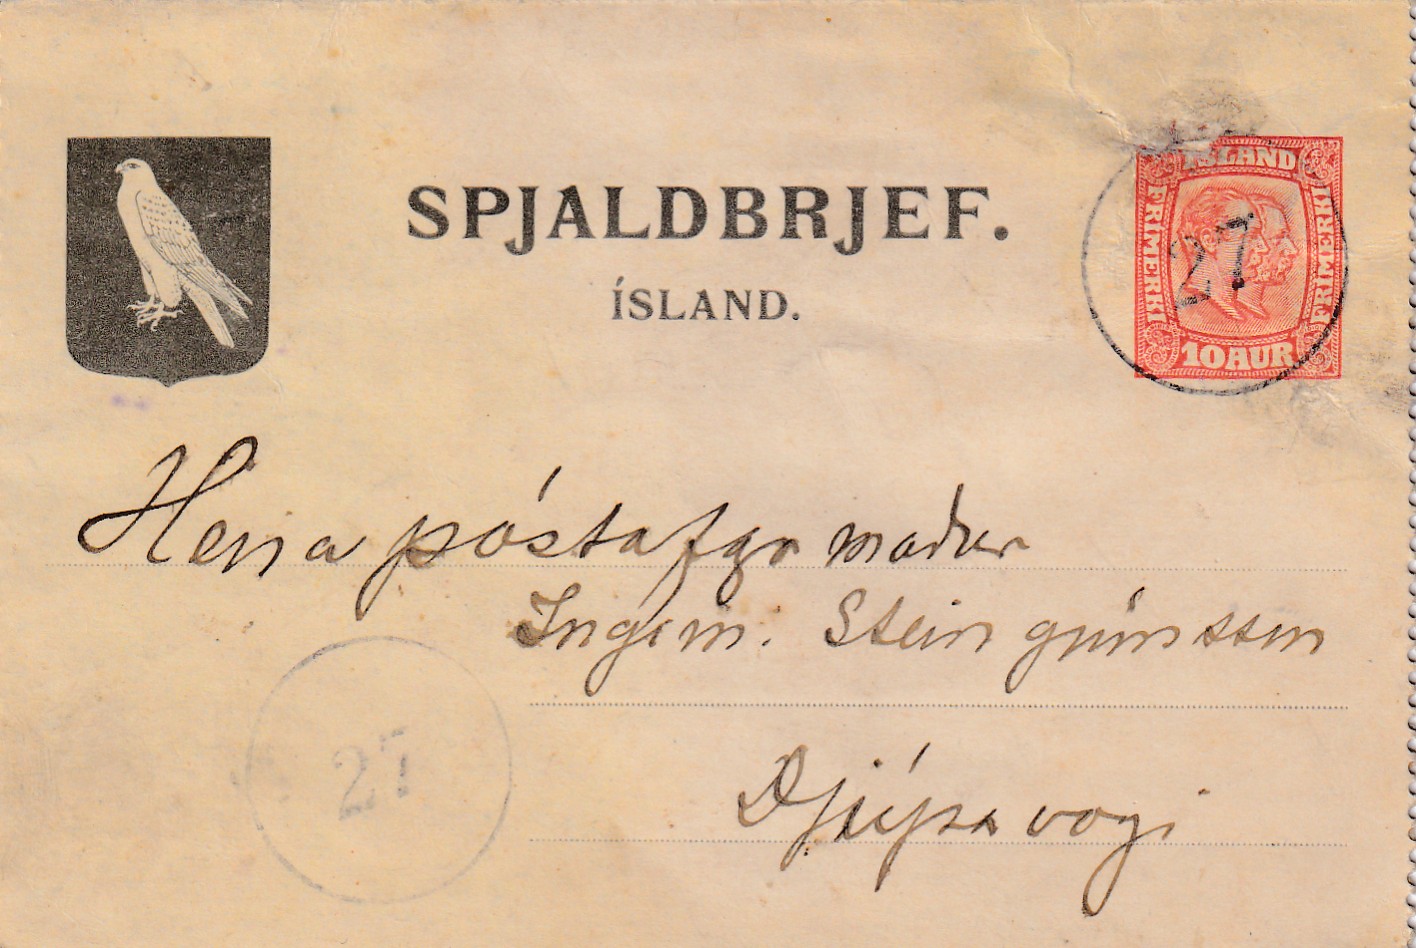 SPJALDBRJEF.
ÍSLAND.
ÍSLAND
FRIMERKI
FRIMERKI
10 AUR
27
Herra póstafgr maður
Ingim. Steingrímsson
Djúpavogi
27